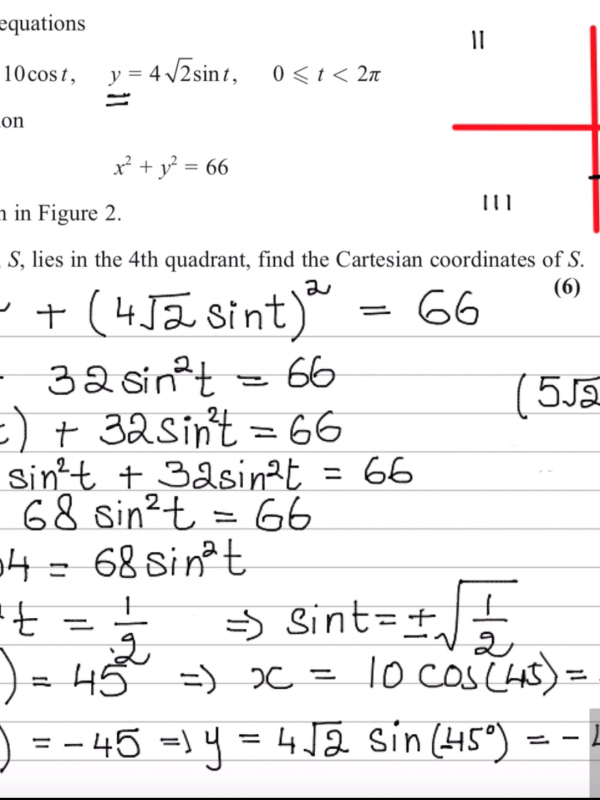 equations
II
10cos t, y = 4√2sin t, 0 ⩽ t < 2π
on
x² + y² = 66
III
n in Figure 2.
S, lies in the 4th quadrant, find the Cartesian coordinates of S.
(6)
+ (4√2 sint)² = 66
32sin²t = 66
(5√2
) + 32sin²t = 66
sin²t + 32sin²t = 66
68 sin²t = 66
04 = 68sin²t
t = 1/2 => sint = ±√1/2
) = 45 => x = 10 cos(45) =
) = -45 => y = 4√2 sin(-45°) = -4